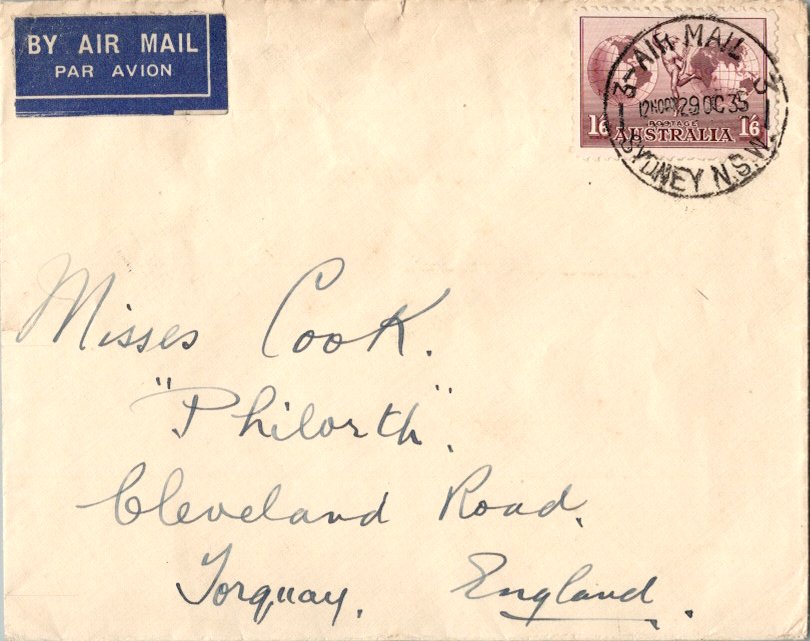 BY AIR MAIL
PAR AVION
3-AIR MAIL 3
12NOON 29 OC 35
SYDNEY N.S.W.
1'6 POSTAGE 1'6
AUSTRALIA
Misses Cook.
"Philorth".
Cleveland Road.
Torquay. England.